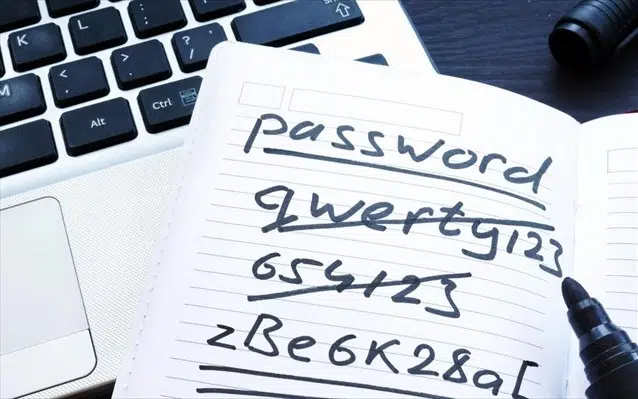 K L
M < , > . ? / Shift
Alt Ctrl
password
qwerty123
654123
zBe6K28a[